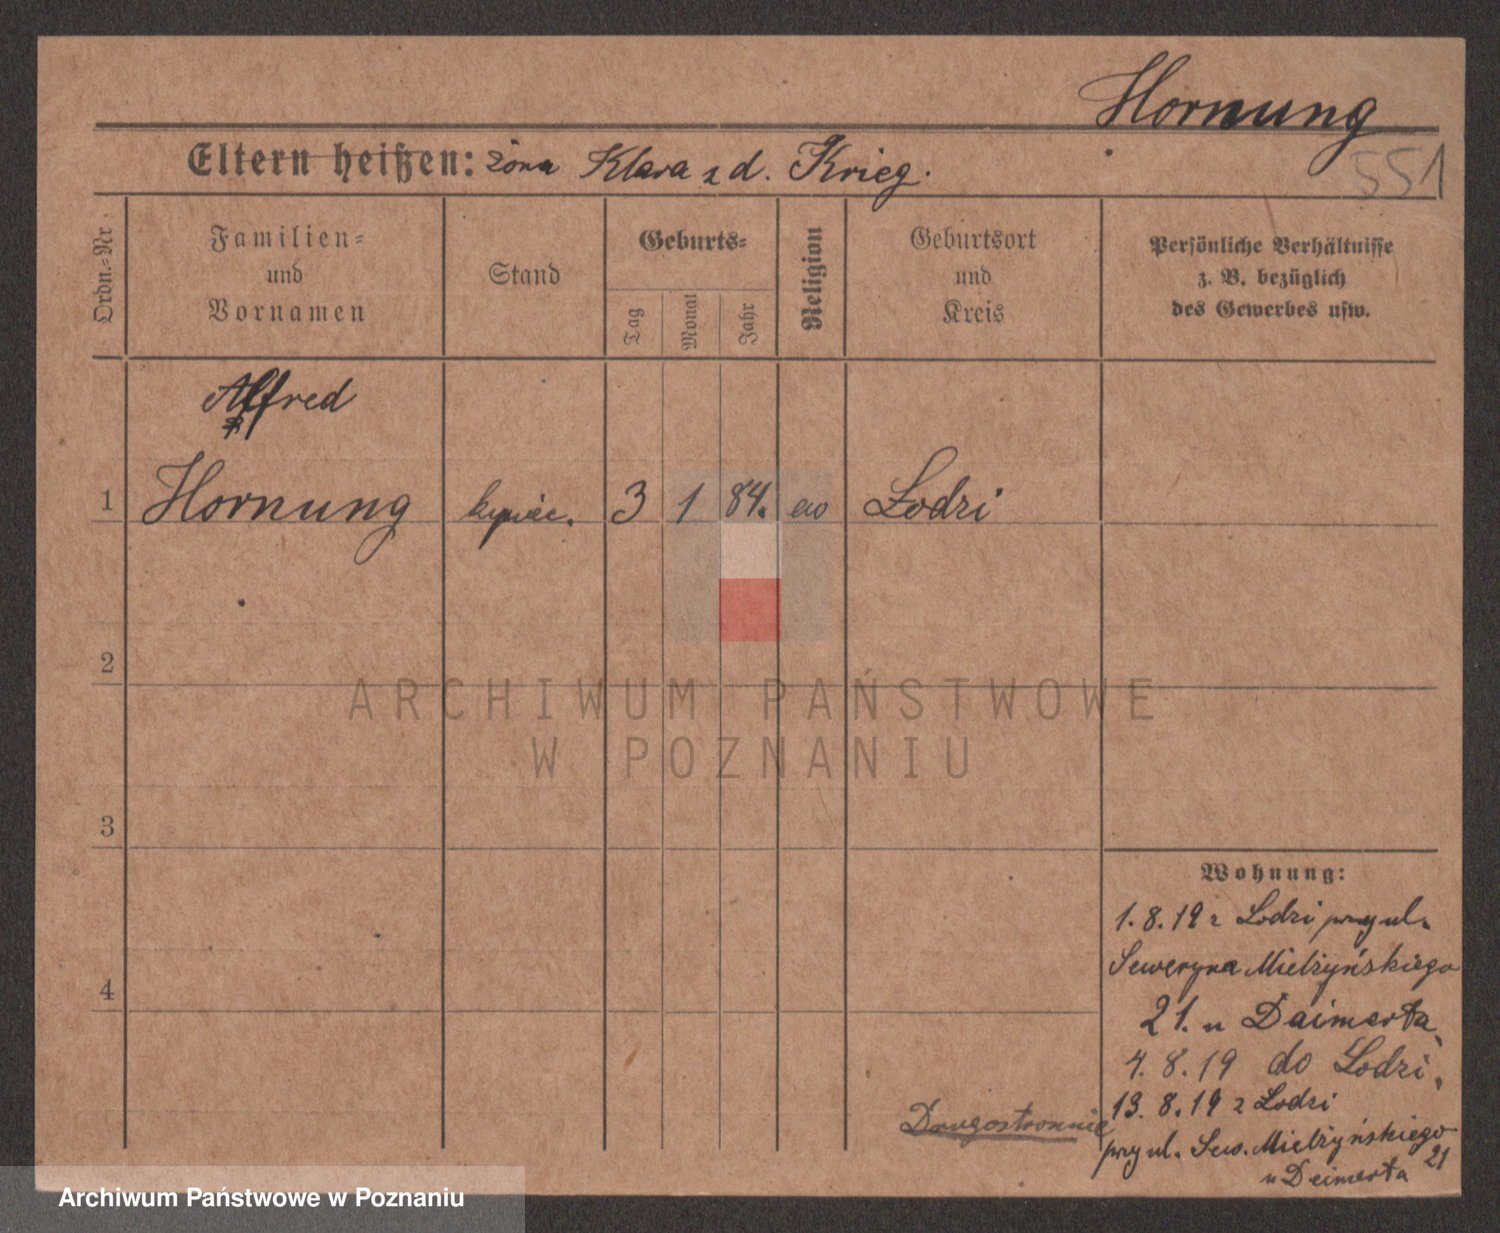 Hornung
551
Eltern heißen: żona Klara z d. Krieg.
Ordn.=Nr.
Familien=
und
Vornamen
Stand
Geburts=
Tag
Monat
Jahr
Religion
Geburtsort
und
Kreis
Persönliche Verhältnisse
z. B. bezüglich
des Gewerbes usw.
Alfred
1 Hornung kupiec. 3 1 84. ew Łodzi
2
ARCHIWUM PAŃSTWOWE
W POZNANIU
3
Wohnung:
1.8.19 z Łodzi przy ul.
Seweryna Mielżyńskiego
4
21. u Daimerta
4.8.19 do Łodzi,
13.8.19 z Łodzi
Drugostronnie
przy ul. Sew. Mielżyńskiego
21
u Deimerta
Archiwum Państwowe w Poznaniu